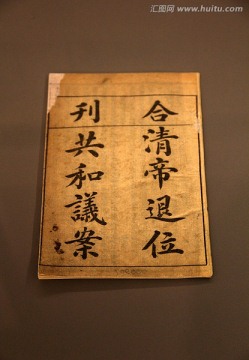 汇图网
www.huitu.com
清帝退位
共和議案
合刊